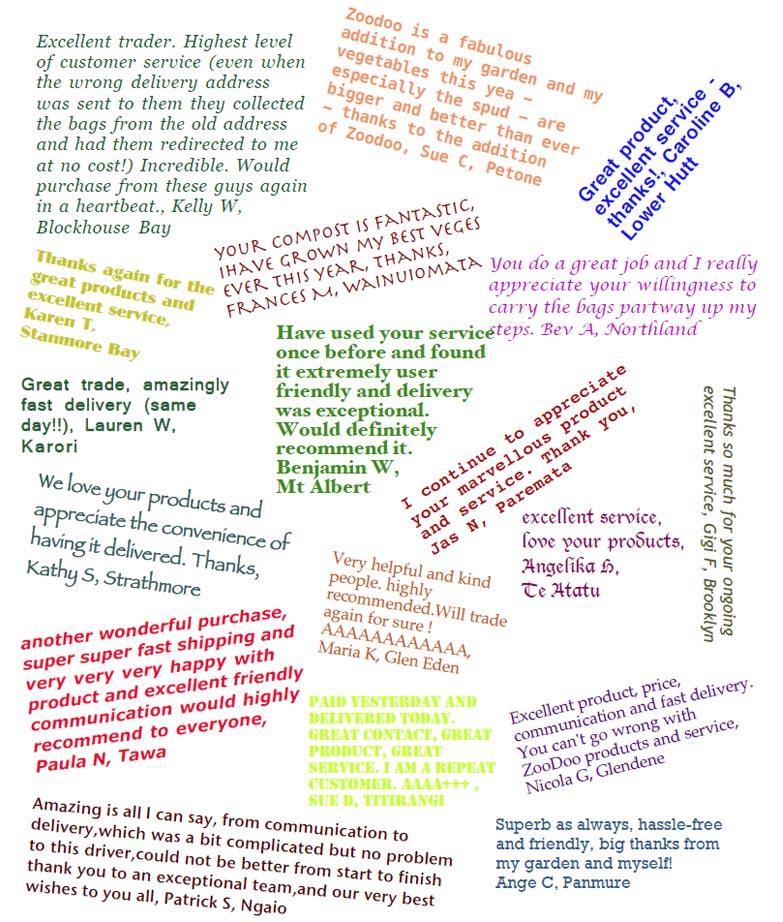 Excellent trader. Highest level
of customer service (even when
the wrong delivery address
was sent to them they collected
the bags from the old address
and had them redirected to me
at no cost!) Incredible. Would
purchase from these guys again
in a heartbeat., Kelly W,
Blockhouse Bay
Zoodoo is a fabulous
addition to my garden and my
vegetables this yea –
especially the spud – are
bigger and better than ever
– thanks to the addition
of Zoodoo, Sue C, Petone
Great product,
excellent service -
thanks!, Caroline B,
Lower Hutt
YOUR COMPOST IS FANTASTIC,
IHAVE GROWN MY BEST VEGES
EVER THIS YEAR, THANKS,
FRANCES M, WAINUIOMATA
Thanks again for the
great products and
excellent service,
Karen T,
Stanmore Bay
You do a great job and I really
appreciate your willingness to
carry the bags partway up my
steps. Bev A, Northland
Have used your service
once before and found
it extremely user
friendly and delivery
was exceptional.
Would definitely
recommend it.
Benjamin W,
Mt Albert
Great trade, amazingly
fast delivery (same
day!!), Lauren W,
Karori
I continue to appreciate
your marvellous product
and service. Thank you,
Jas N, Paremata
Thanks so much for your ongoing
excellent service, Gigi F, Brooklyn
We love your products and
appreciate the convenience of
having it delivered. Thanks,
Kathy S, Strathmore
excellent service,
love your products,
Angelika H,
Te Atatu
Very helpful and kind
people. highly
recommended.Will trade
again for sure !
AAAAAAAAAAAA,
Maria K, Glen Eden
another wonderful purchase,
super super fast shipping and
very very very happy with
product and excellent friendly
communication would highly
recommend to everyone,
Paula N, Tawa
PAID YESTERDAY AND
DELIVERED TODAY.
GREAT CONTACT, GREAT
PRODUCT, GREAT
SERVICE. I AM A REPEAT
CUSTOMER. AAAA+++ ,
SUE D, TITIRANGI
Excellent product, price,
communication and fast delivery.
You can't go wrong with
ZooDoo products and service,
Nicola G, Glendene
Amazing is all I can say, from communication to
delivery,which was a bit complicated but no problem
to this driver,could not be better from start to finish
thank you to an exceptional team,and our very best
wishes to you all, Patrick S, Ngaio
Superb as always, hassle-free
and friendly, big thanks from
my garden and myself!
Ange C, Panmure